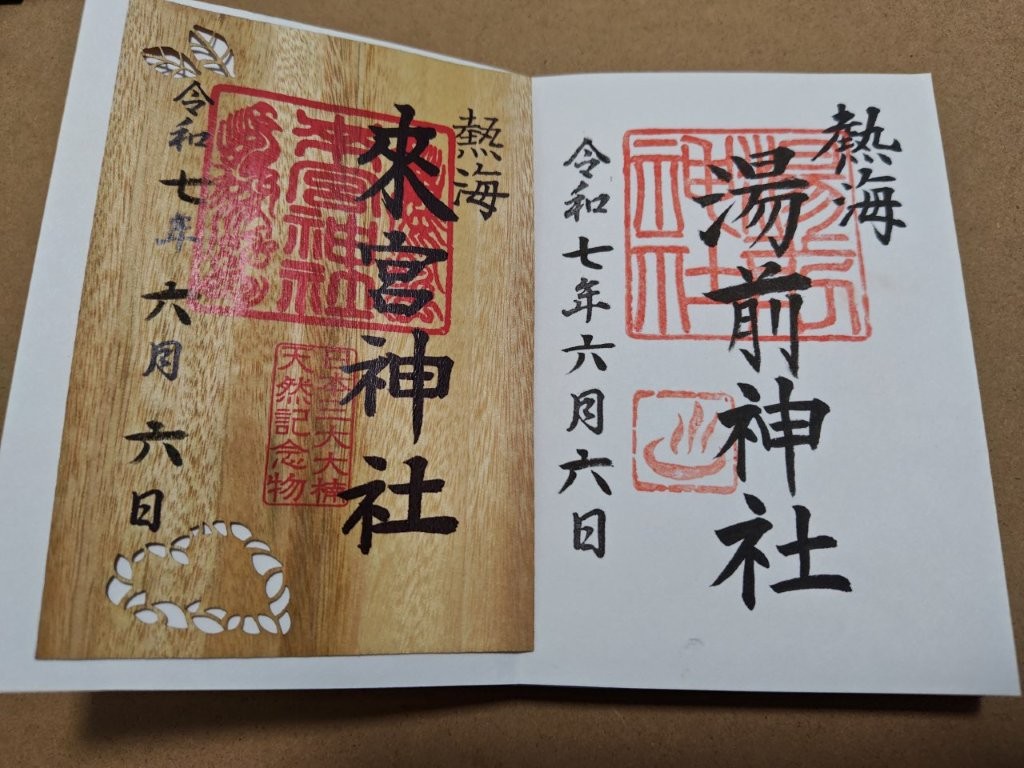 熱海
湯前神社
湯前神社
令和七年六月六日
熱海
來宮神社
來宮神社
日本三大大楠
天然記念物
令和七年六月六日